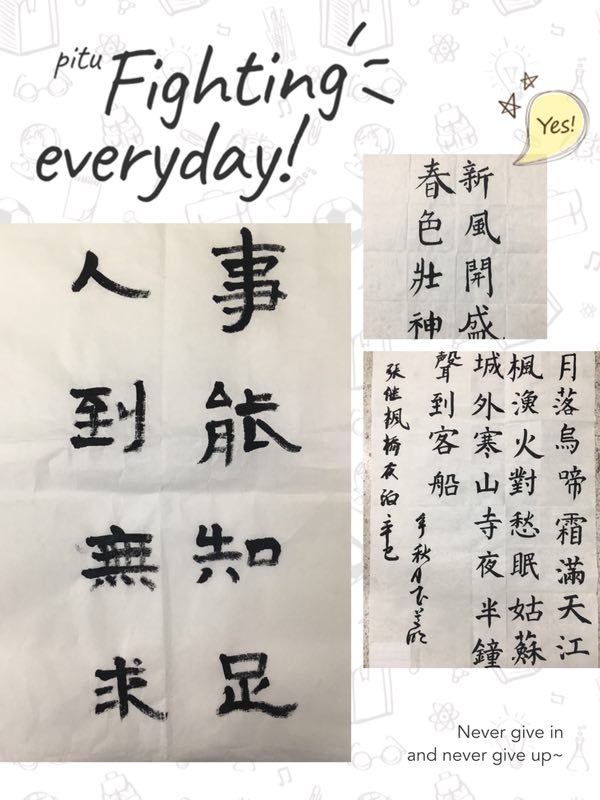 pitu
Fighting
everyday!
Yes!
新風開盛
春色壯神
事能知足
人到無求
月落烏啼霜滿天江
楓漁火對愁眠姑蘇
城外寒山寺夜半鐘
聲到客船
张继枫橋夜泊辛巳
年秋月
Never give in
and never give up~